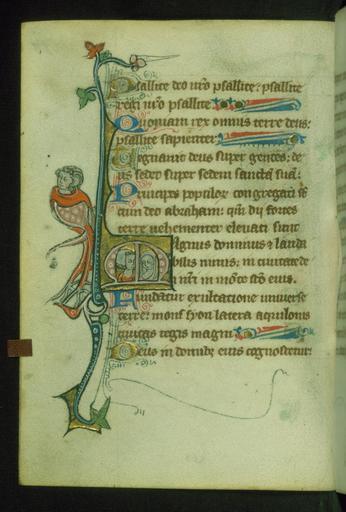 Psallite deo nr̄o psallite: psallite
regi nr̄o psallite
Quoniam rex omnis terre deus:
psallite sapienter
Regnauit deus super gentes: de
us sedet super sedem sanctā suā:
Principes populoꝝ congregati sūt
cum deo abraham: qm̄ dii fortes
terre uehementer eleuati sunt
Magnus dominus ⁊ lauda
bilis nimis: in ciuitate de
i nr̄i in mōte scō eius.
Fundatur exultatione uniuerse
terre: mons syon latera aquilonis
ciuitas regis magni
Deus in domibꝫ eius cognoscetur: